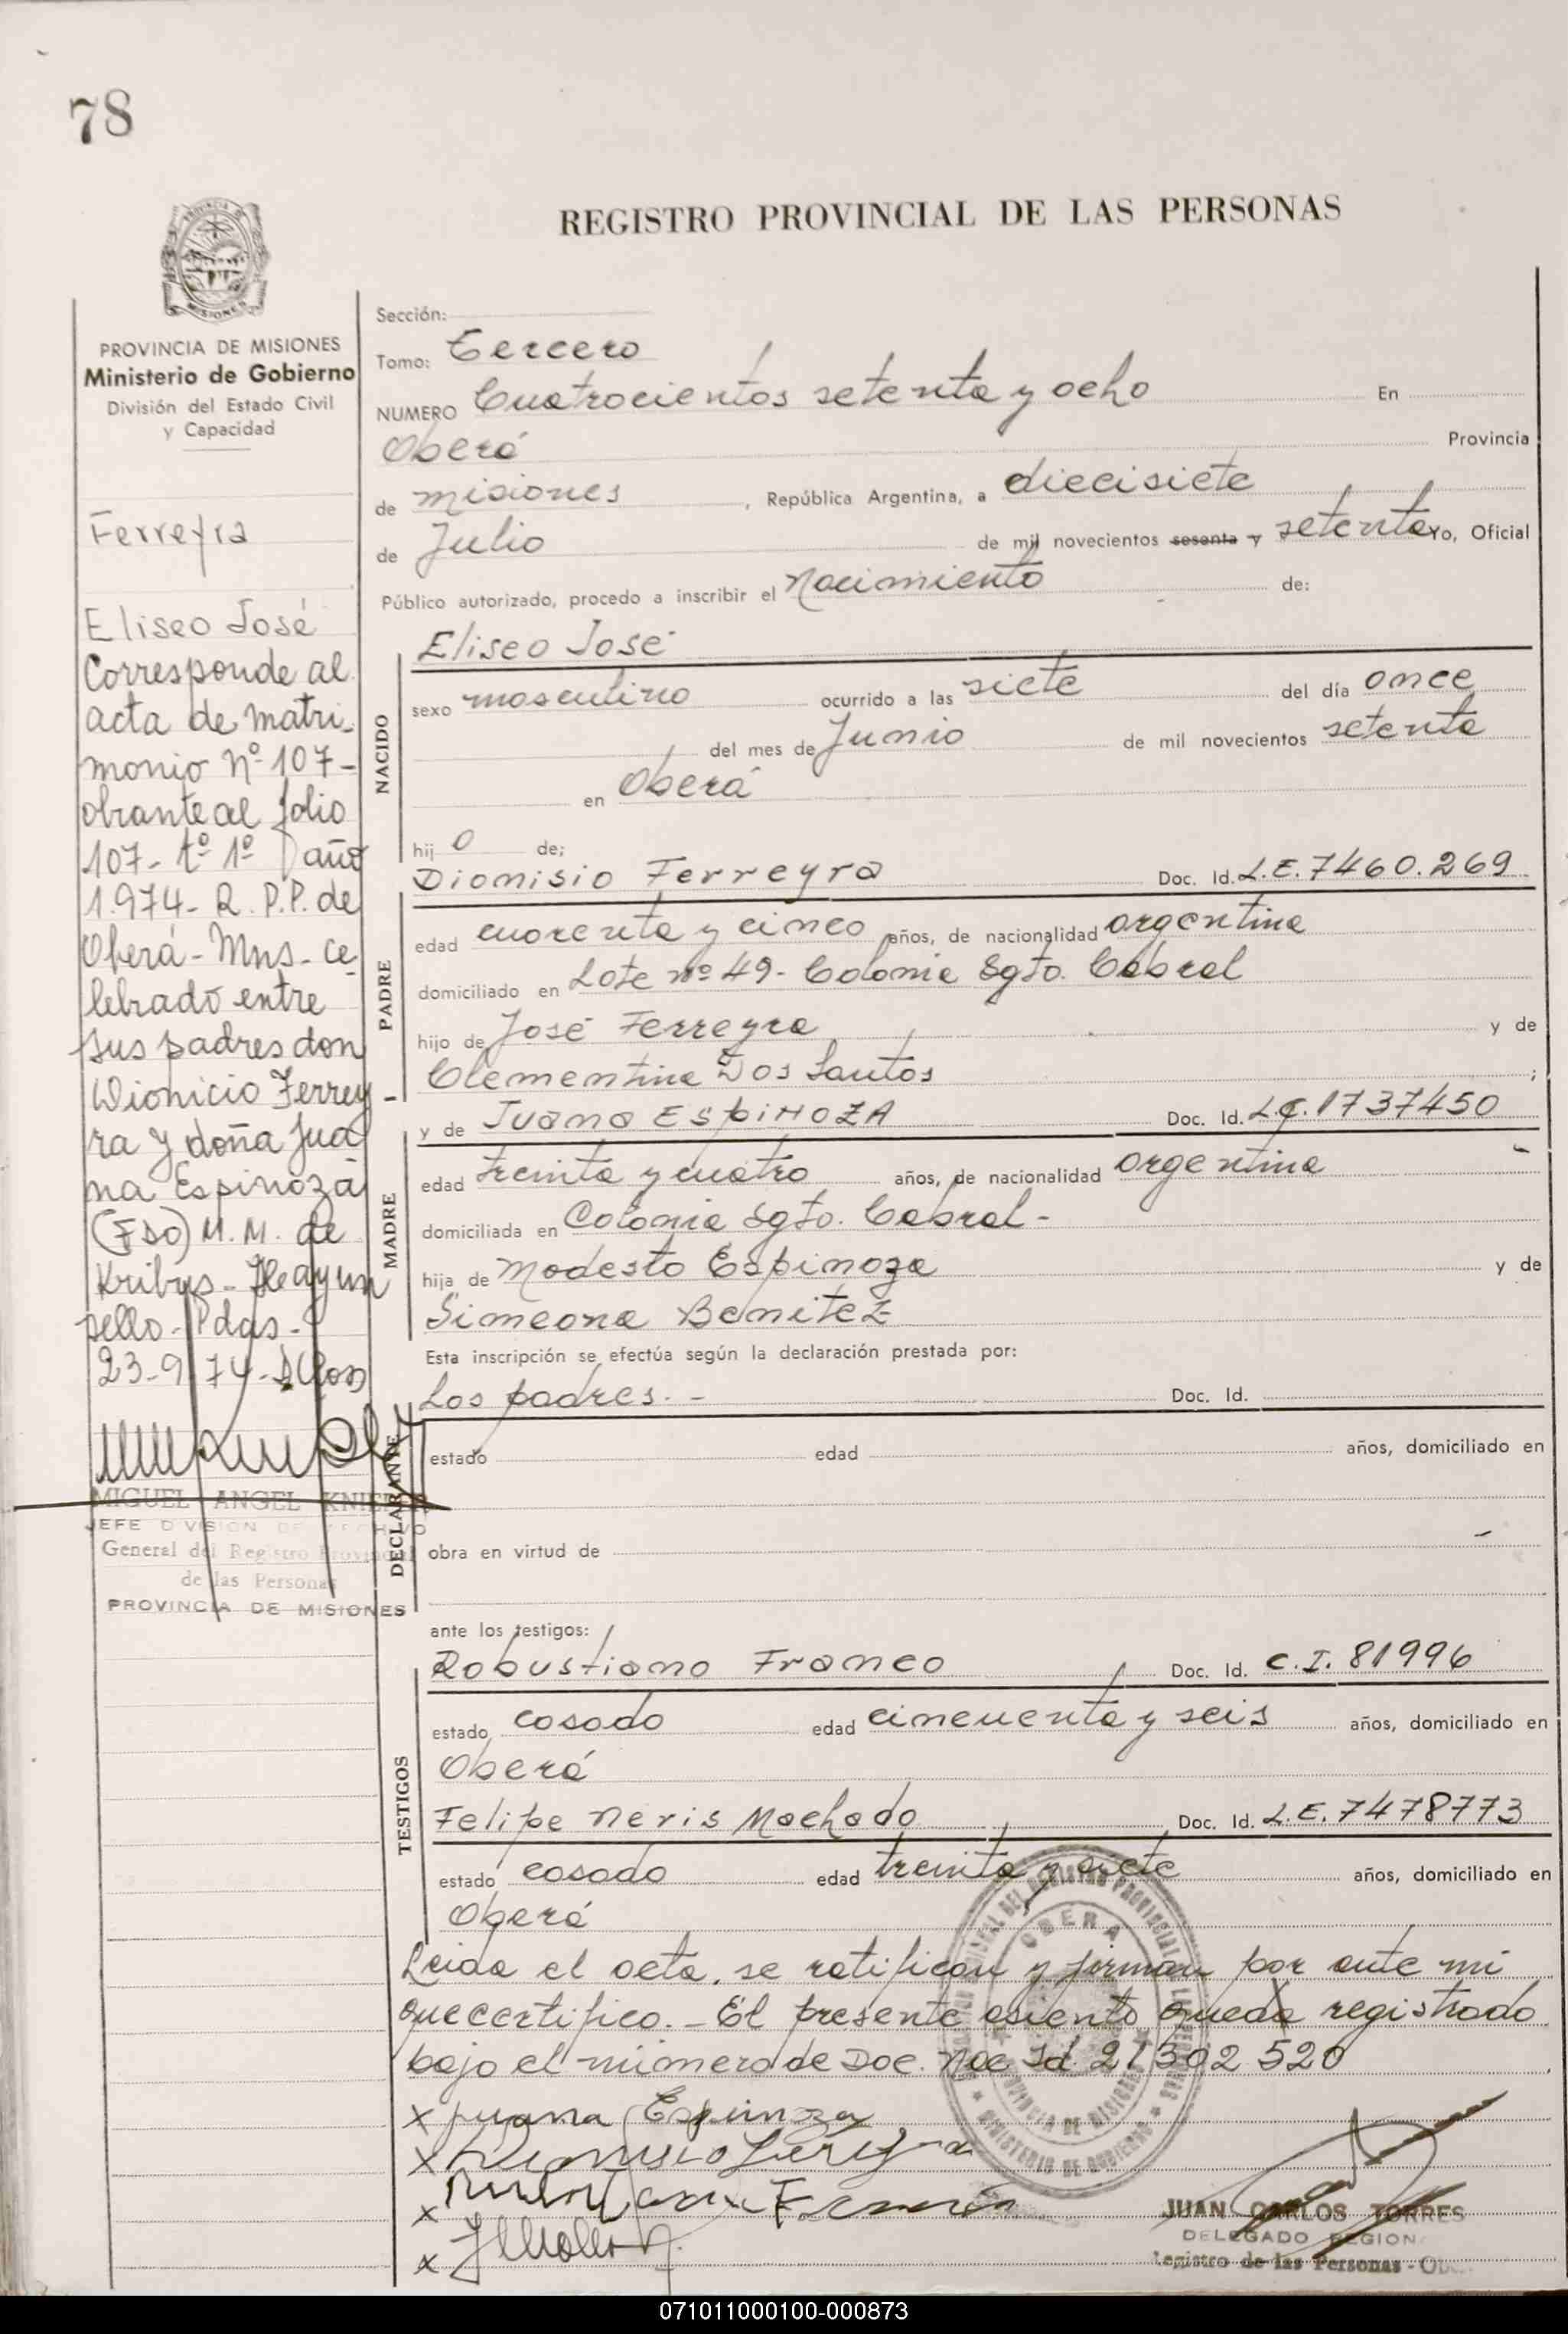 78
REGISTRO PROVINCIAL DE LAS PERSONAS
PROVINCIA DE MISIONES
Ministerio de Gobierno
División del Estado Civil
y Capacidad
Ferreyra
Eliseo José
Corresponde al
acta de matri-
monio Nº 107-
obrante al folio
107- tº 1º año
1.974- R. P.P. de
Oberá- Mns- ce
lebrado entre
sus padres don
Dionicio Ferrey-
ra y doña Jua
na Espinoza
(Fdo) M. M. de
Kribus- Hay un
sello- Pdas-
23-9-74-
MIGUEL ANGEL KNIE
JEFE DIVISION DE ARCHIVO
General del Registro Provincial
de las Personas
PROVINCIA DE MISIONES
Sección:
Tomo: Tercero
NUMERO Cuatrocientos setenta y ocho En
Oberá Provincia
de misiones , República Argentina, a diecisiete
de Julio de mil novecientos sesenta y setenta Yo, Oficial
Público autorizado, procedo a inscribir el Nacimiento de:
Eliseo José
NACIDO
sexo masculino ocurrido a las siete del día once
del mes de Junio de mil novecientos setenta
en Oberá
hij o de;
Dionisio Ferreyra Doc. Id. L.E. 7460.269
PADRE
edad cuarenta y cinco años, de nacionalidad argentina
domiciliado en Lote nº 49- Colonia Sgto. Cabral
hijo de José Ferreyra y de
Clementina Dos Santos ;
y de Juana ESpiNOZA Doc. Id. L.C. 1737450
MADRE
edad treinta y cuatro años, de nacionalidad argentina
domiciliada en Colonia Sgto. Cabral-
hija de Modesto Espinoza y de
Simeona Benitez
Esta inscripción se efectúa según la declaración prestada por:
Los padres.- Doc. Id.
DECLARANTE
estado edad años, domiciliado en
obra en virtud de
ante los testigos:
Robustiano Franco Doc. Id. C.I. 81996
TESTIGOS
estado casado edad cincuenta y seis años, domiciliado en
Oberá
Felipe Neris Machado Doc. Id. L.E. 7478773
estado casado edad treinta y siete años, domiciliado en
Oberá
Leida el acta, se ratifican y firman por ante mi
que certifico.- El presente asiento queda registrado
bajo el número de Doc. Nac Id. 21302520
x Juana Espinoza
x Dionisio Ferreyra
x
x
OBERA
PROVINCIA DE MISIONES
MINISTERIO DE GOBIERNO
JUAN CARLOS TORRES
DELEGADO REGION
Registro de las Personas - Ob
071011000100-000873